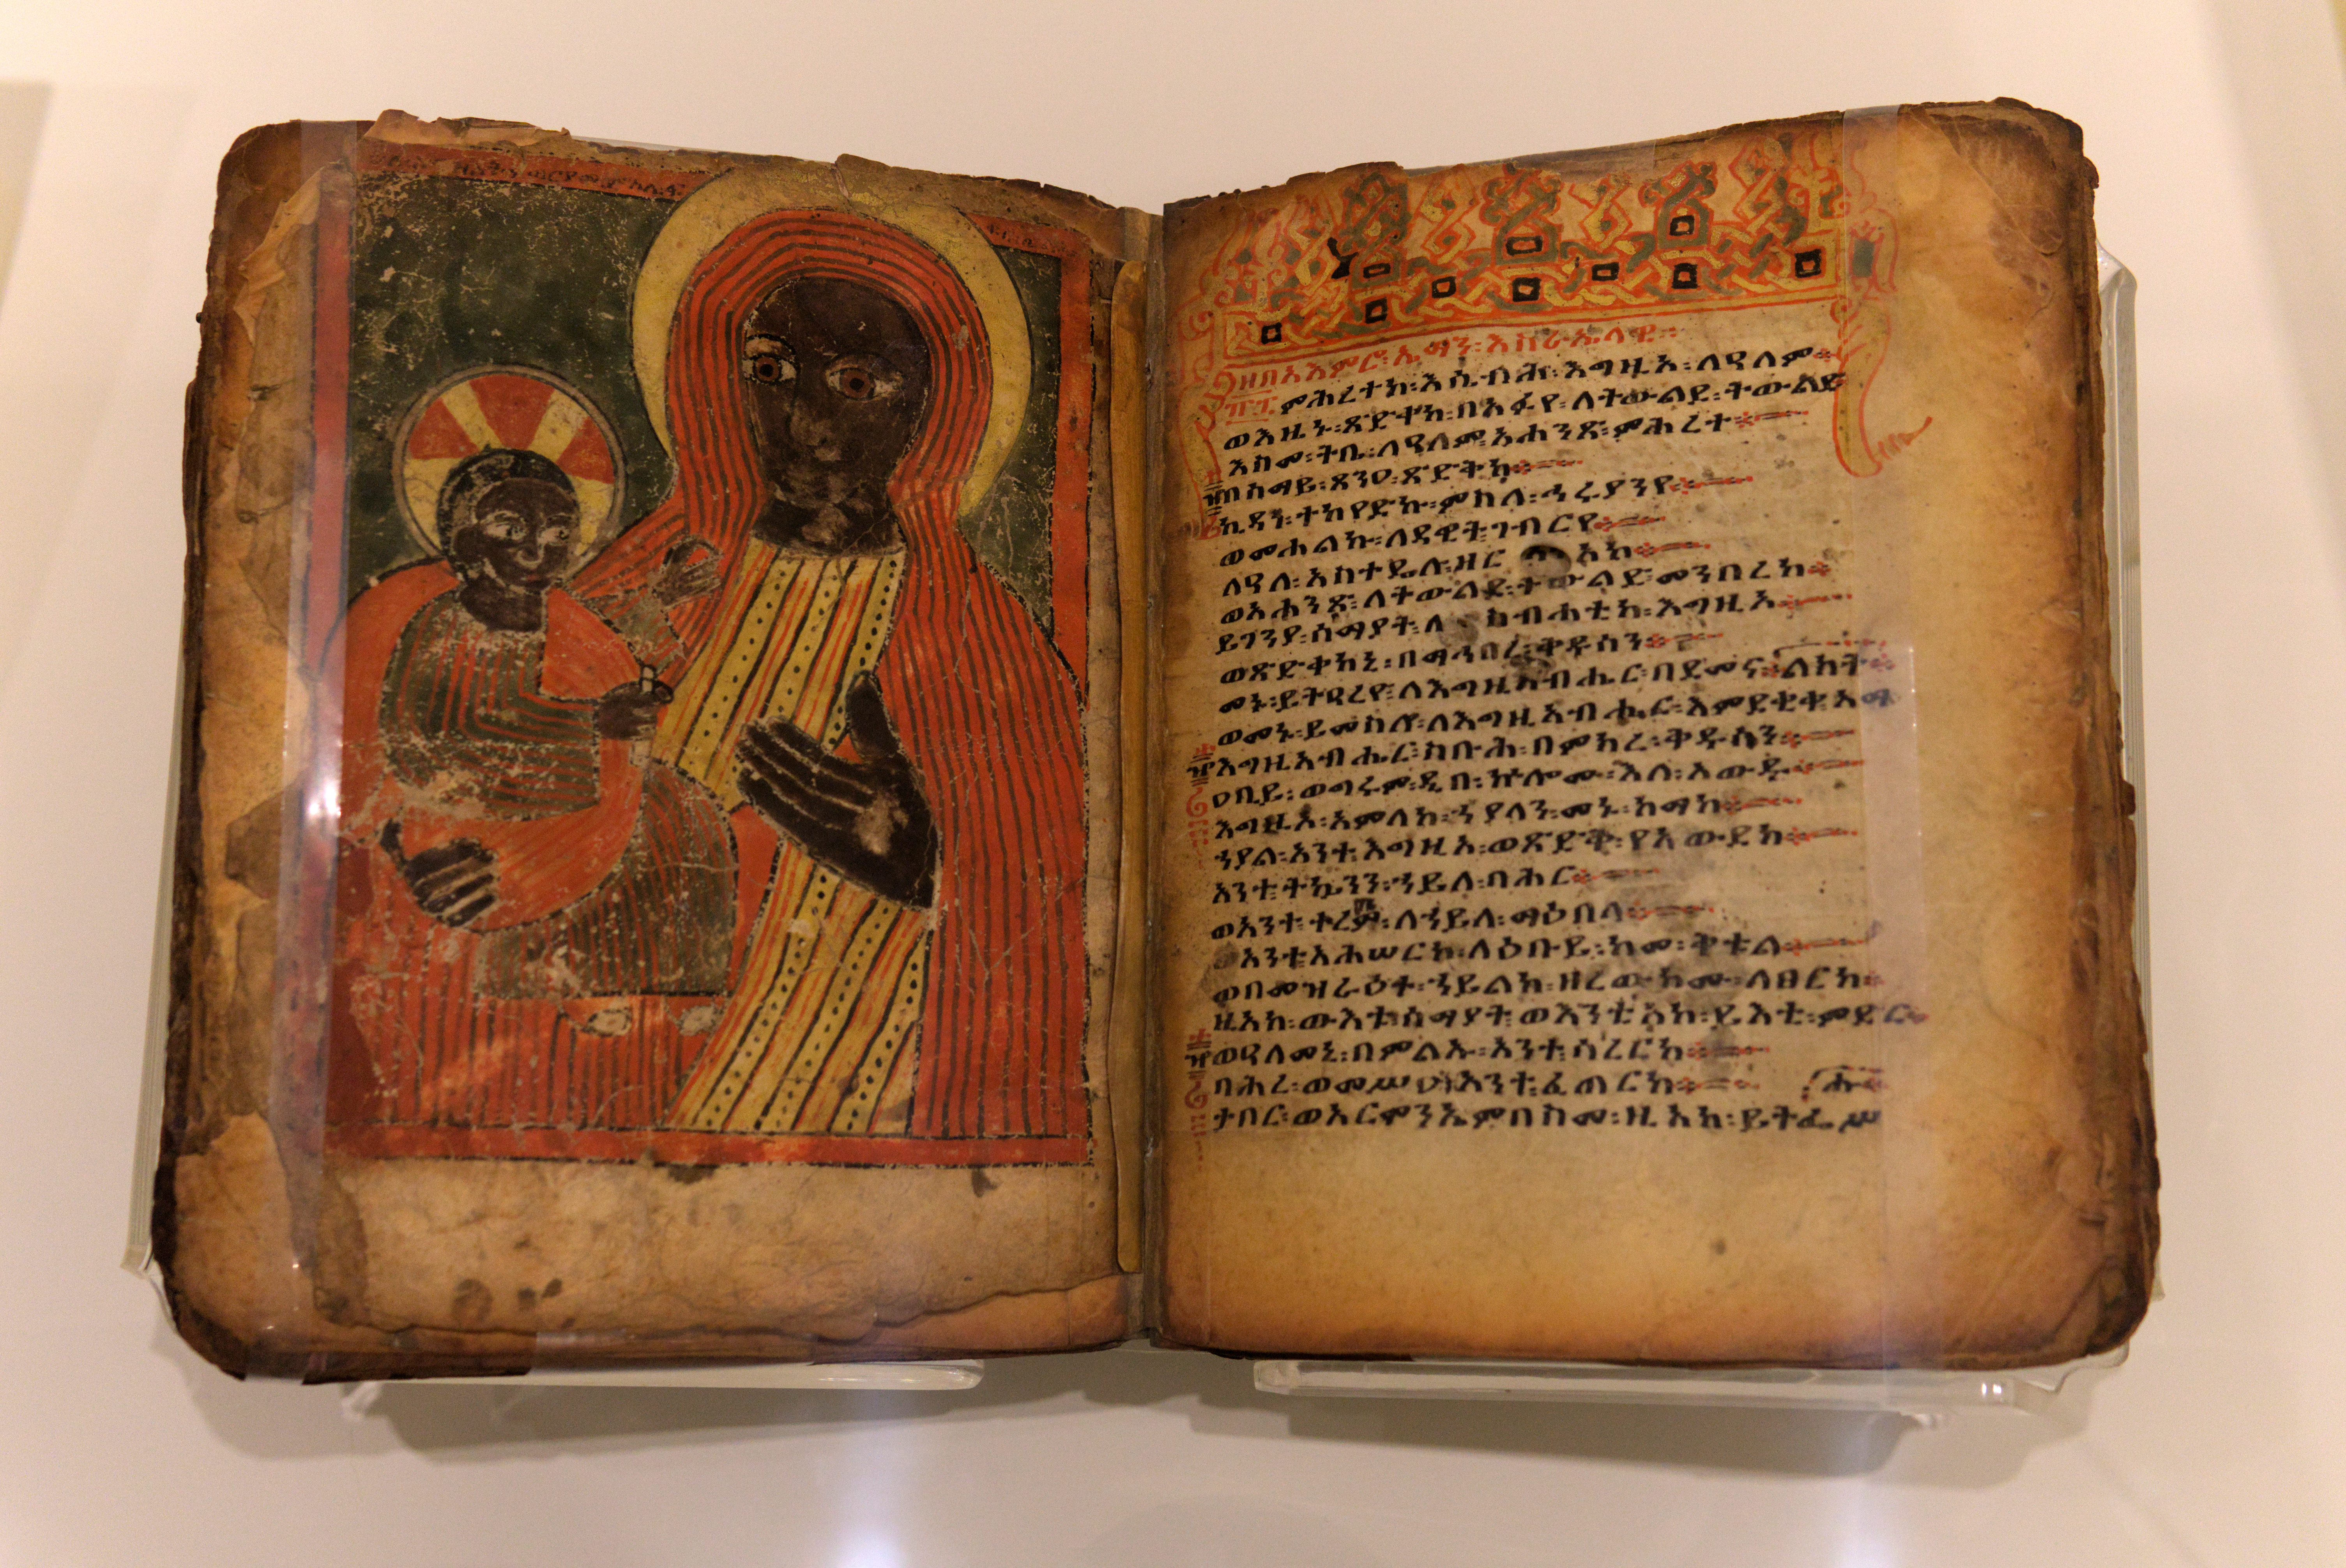 ዘበአእምሮ፡ኤማን፡እስራኤላዊ።
፹፰ ምሕረተከ፡እሴብሕ፡እግዚኦ፡ለዓለም
ወእዜኑ፡ጽድቀከ፡በአፉየ፡ለትውልደ፡ትውልድ
እስመ፡ትቤ፡ለዓለም፡አሐንጽ፡ምሕረተ
በሰማይ፡ጸንዐ፡ጽድቅከ
ኪዳነ፡ተካየድኩ፡ምስለ፡ኅሩያንየ
ወመሐልኩ፡ለዳዊት፡ገብርየ
አስተዴሉ፡ዘር አከ
ወአሐንጽ፡ለትውልደ፡ትውልድ፡መንበረከ
ይገንዩ፡ሰማያት፡ለስብሐቲከ፡እግዚኦ
ወጽድቅከኒ፡በማኅበረ፡ቅዱሳን
መኑ፡ይትዔረዮ፡ለእግዚአብሔር፡በደመና ልክት
ወመኑ፡ይመስሎ፡ለእግዚአብሔር፡እምደቂቀ፡አማ
እግዚአብሔር፡ስቡሕ፡በምክረ፡ቅዱሳን
ዐቢይ፡ወግሩም፡ዲበ፡ኵሎሙ፡እለ፡አውዱ
እግዚኦ፡አምላከ፡ኀያላን፡መኑ፡ከማከ
ኀያል፡አንተ፡እግዚኦ፡ወጽድቅ፡የአውደከ
አንተ፡ትኴንን፡ኀይለ፡ባሕር
ወአንተ፡ለኀይለ፡ማዕበላ
አንተ፡አሕሠርከ፡ለዕቡይ፡ከመ፡ቅቱል
ወበመዝራዕተ፡ኀይልከ፡ዘረውኮሙ፡ለፀርከ
ዚአከ፡ውእቱ፡ሰማያት፡ወእንቲአከ፡ይእቲ፡ምድር
ወዓለመኒ፡በምልኡ፡አንተ፡ሳረርከ
ባሕረ፡ወመሥዐ፡አንተ፡ፈጠርከ ሑ
ታቦር፡ወአርሞንኤም፡በስመ፡ዚአከ፡ይትፌሥ